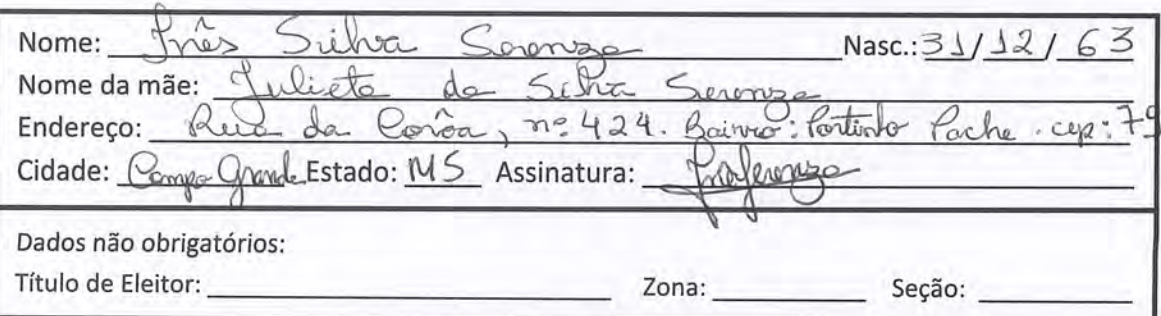 Nome: Inês Silva Serenza Nasc.: 31/12/63
Nome da mãe: Julieta da Silva Serenza
Endereço: Rua da Corôa, nº 424. Bairro: Portinho Pache. cep: 79
Cidade: Campo Grande Estado: MS Assinatura:
Dados não obrigatórios:
Título de Eleitor: Zona: Seção: